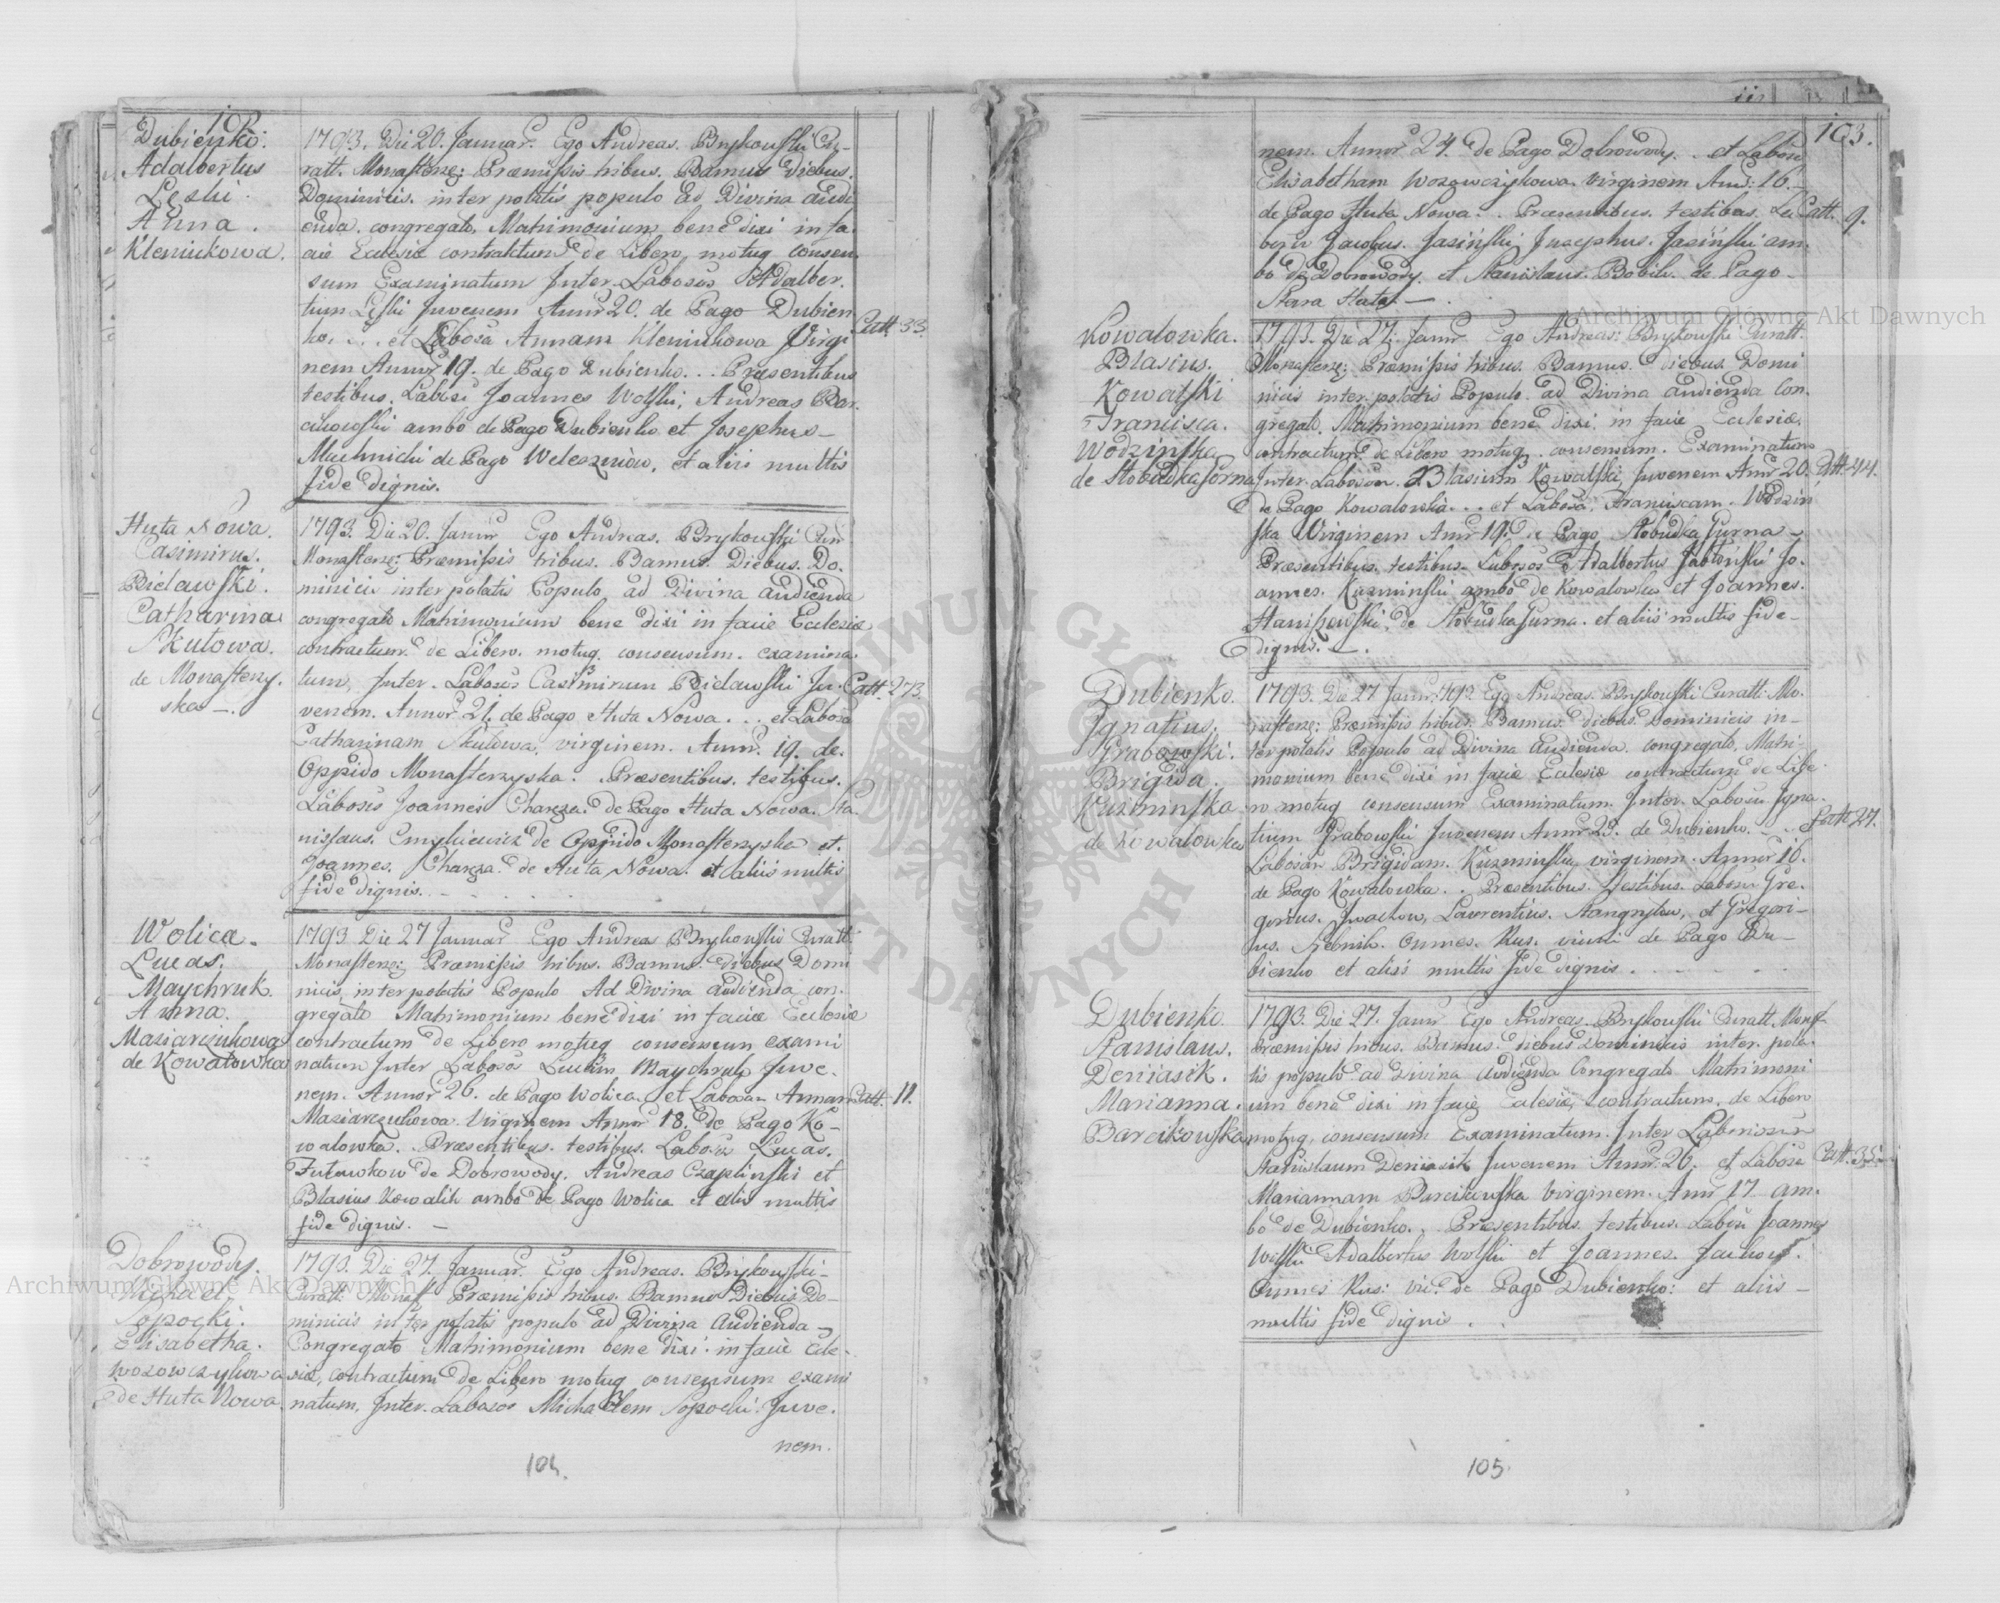 Dubienko:
Adalbertus
Leski.
Anna.
Kleniukowa.
1793. Die 20. Januar. Ego Andreas. Brykowski Cu-
ratt. Monasterz: Præmissis tribus. Bamus Diebus.
Dominicis. inter polatis populo Ad Divina Audi
enda. congregato, Matrimonium bene dixi in fa.
cie Eclesiæ contractum de Libero, motuq consen
sum Examinatum Inter Labosos Adalber.
tum Leski Juvenem Annor 20. de Pago Dubien
ko. . . et Labosa Annam Kleniukowa Virgi
nem Annor 19. de Pago Dubienko. . . Præsentibus
testibus. Labosi Joannes Wolski, Andreas Bar.
cikowski ambo de Pago Dubienko et Josephus
Muchnicki de Pago Weleszniow, et aliis multis
fide dignis.
Catt. 33.
Huta Nowa.
Casimirus.
Bielawski.
Catharina
Skutowa.
de Monastery.
ska —.
1793. Die 20. Januar Ego Andreas. Brykowski Cur
Monasterz; Præmissis tribus. Bamus. Diebus. Do.
minicis inter polatis Populo ad Divina Audienda
congregato Matrimonium bene dixi in facie Eclesiæ
contractum. de Libero. motuq. consensum. examina.
tum, Inter. Labosos Casimirum Bielawski Ju.
venem. Annor 21. de Pago Huta Nowa. . . et Labosa
Catharinam Skutowa, virginem. Annr. 19. de.
Oppido Monasterzyska. Præsentibus. testibus.
Labosis Joannes Charęza. de Pago Huta Nowa. Sta.
nislaus. de Oppido Monasterzyska et.
Joannes. Charęza. de Huta Nowa. et aliis multis
fide dignis.
Catt. 273.
Wolica.
Lucas.
Maychruk.
Anna.
Maziarczukowa
de Kowalowka
1793. Die 27 Januar Ego Andreas Brykowski Curatt
Monasterz; Præmissis tribus. Bamus. Diebus Domi
nicis inter polatis Populo Ad Divina Audienda con.
gregato Matrimonium bene dixi in facie Eclesiæ
contractum de Libero motuq consensum exami
natum Inter Labosos Lucam Maychruk Juve.
nem. Annor 26. de Pago Wolica. et Labosam Annam
Maziarczukowa. Virginem Annor 18. de Pago Ko-
walowka. Præsentibus. testibus. Labosis Lucas.
de Dobrowody. Andreas Czaplinski et
Blasius Kowalik ambo de Pago Wolica et aliis multis
fide dignis. —
Catt. 11.
Dobrowody.
Michael
Sopocki.
Elisabetha.
Wozowczykowa
de Huta Nowa.
1793. Die 27. Januar. Ego Andreas. Brykowski-
Curatt Monas Præmissis tribus. Bamus Diebus Do-
minicis inter polatis populo ad Divina Audienda
Congregato Matrimonium bene dixi. in facie Ecle-
siæ, contractum de Libero motuq consensum exami
natum, Inter. Labosos Michaelem Sopocki. Juve.
nem.
104.
103.
nem. Annor 24. de Pago Dobrowody. . et Labosa
Elisabetham Wozowczykowa. Virginem Ann: 16.
de Pago Huta Nowa. . Præsentibus. testibus. La
Jacobus. Jasinski, Josephus. Jasinski am.
bo de Dobrowody. et Stanislaus. Bobik. de Pago
Stara Huta. —
Catt. 9.
Kowalowka.
Blasius.
Kowalski
Francisca.
Wodzinska
de Slobudka Gorna
1793. Die 27. Januar Ego Andreas: Brykowski Curatt.
Monasterz; Præmissis tribus. Bamus. Diebus. Domi
nicis inter polatis Populo ad Divina Audienda Con.
gregato. Matrimonium bene dixi. in facie Eclesiæ.
contractum de Libero motuq. consensum. Examinatum
Inter. Labosum. Blasium Kowalski, Juvenem Annr 20.
de Pago Kowalowka. . . et Labosa. Franciscam. Wodzin
ska Virginem Annr 19. de Pago Slobudka Gurna
Præsentibus. testibus. Labosos Adalbertus Jablonski Jo.
annes. Kuzminski ambo de Kowalowka et Joannes.
Staniszewski, de Slobudka Gurna. et aliis multis fide-
dignis. —.
Catt. 44.
Dubienko.
Ignatius.
Grabowski.
Brigida.
Kuzminska
de Kowalowka
1793. Die 27 Januar. 793 Ego Andreas. Brykowski Curatt. Mo.
nasterz: Præmissis tribus. Bamus. diebus dominicis in-
ter polatis Populo ad Divina Audienda. congregato, Matri-
monium bene dixi in facie Eclesiæ contractum de Libe-
ro motuq consensum Examinatum. Inter. Labosu Igna-
tium Grabowski Juvenem Annor 23. de Dubienko. . .
Labosam Brigidam. Kuzminska virginem. Annor 16.
de Pago Kowalowka. . . Præsentibus. testibus. Labosu Gre-
gorius. Laurentius. et Gregori-
us. Rebnik. Omnes. Rus. viuni de Pago Du-
bienko et aliis multis fide dignis.
Catt 27.
Dubienko.
Stanislaus.
Deniasik.
Marianna.
Barcikowska
1793. Die 27. Januar Ego Andreas. Brykowski Curatt. Monas
Præmissis tribus. Bamus. diebus Dominicis inter. pola-
tis populo ad Divina Audienda Congregato Matrimoni
um bene dixi in facie Eclesiæ, contractum, de Libero
motuq. consensum Examinatum. Inter Laboriosum
Stanislaum Deniasik Juvenem Annor. 26. et Labosa
Mariannam Barcikowska Virginem. Annr 17. am.
bo de Dubienko. . Præsentibus. testibus. Labosu Joannes
Wolski Adalbertus Wolski et Joannes.
Omnes Rus: vi: de Pago Dubienko: et aliis
multis fide dignis .
105.
Archiwum Główne Akt Dawnych
Archiwum Główne Akt Dawnych
ARCHIWUM GŁÓWNE AKT DAWNYCH